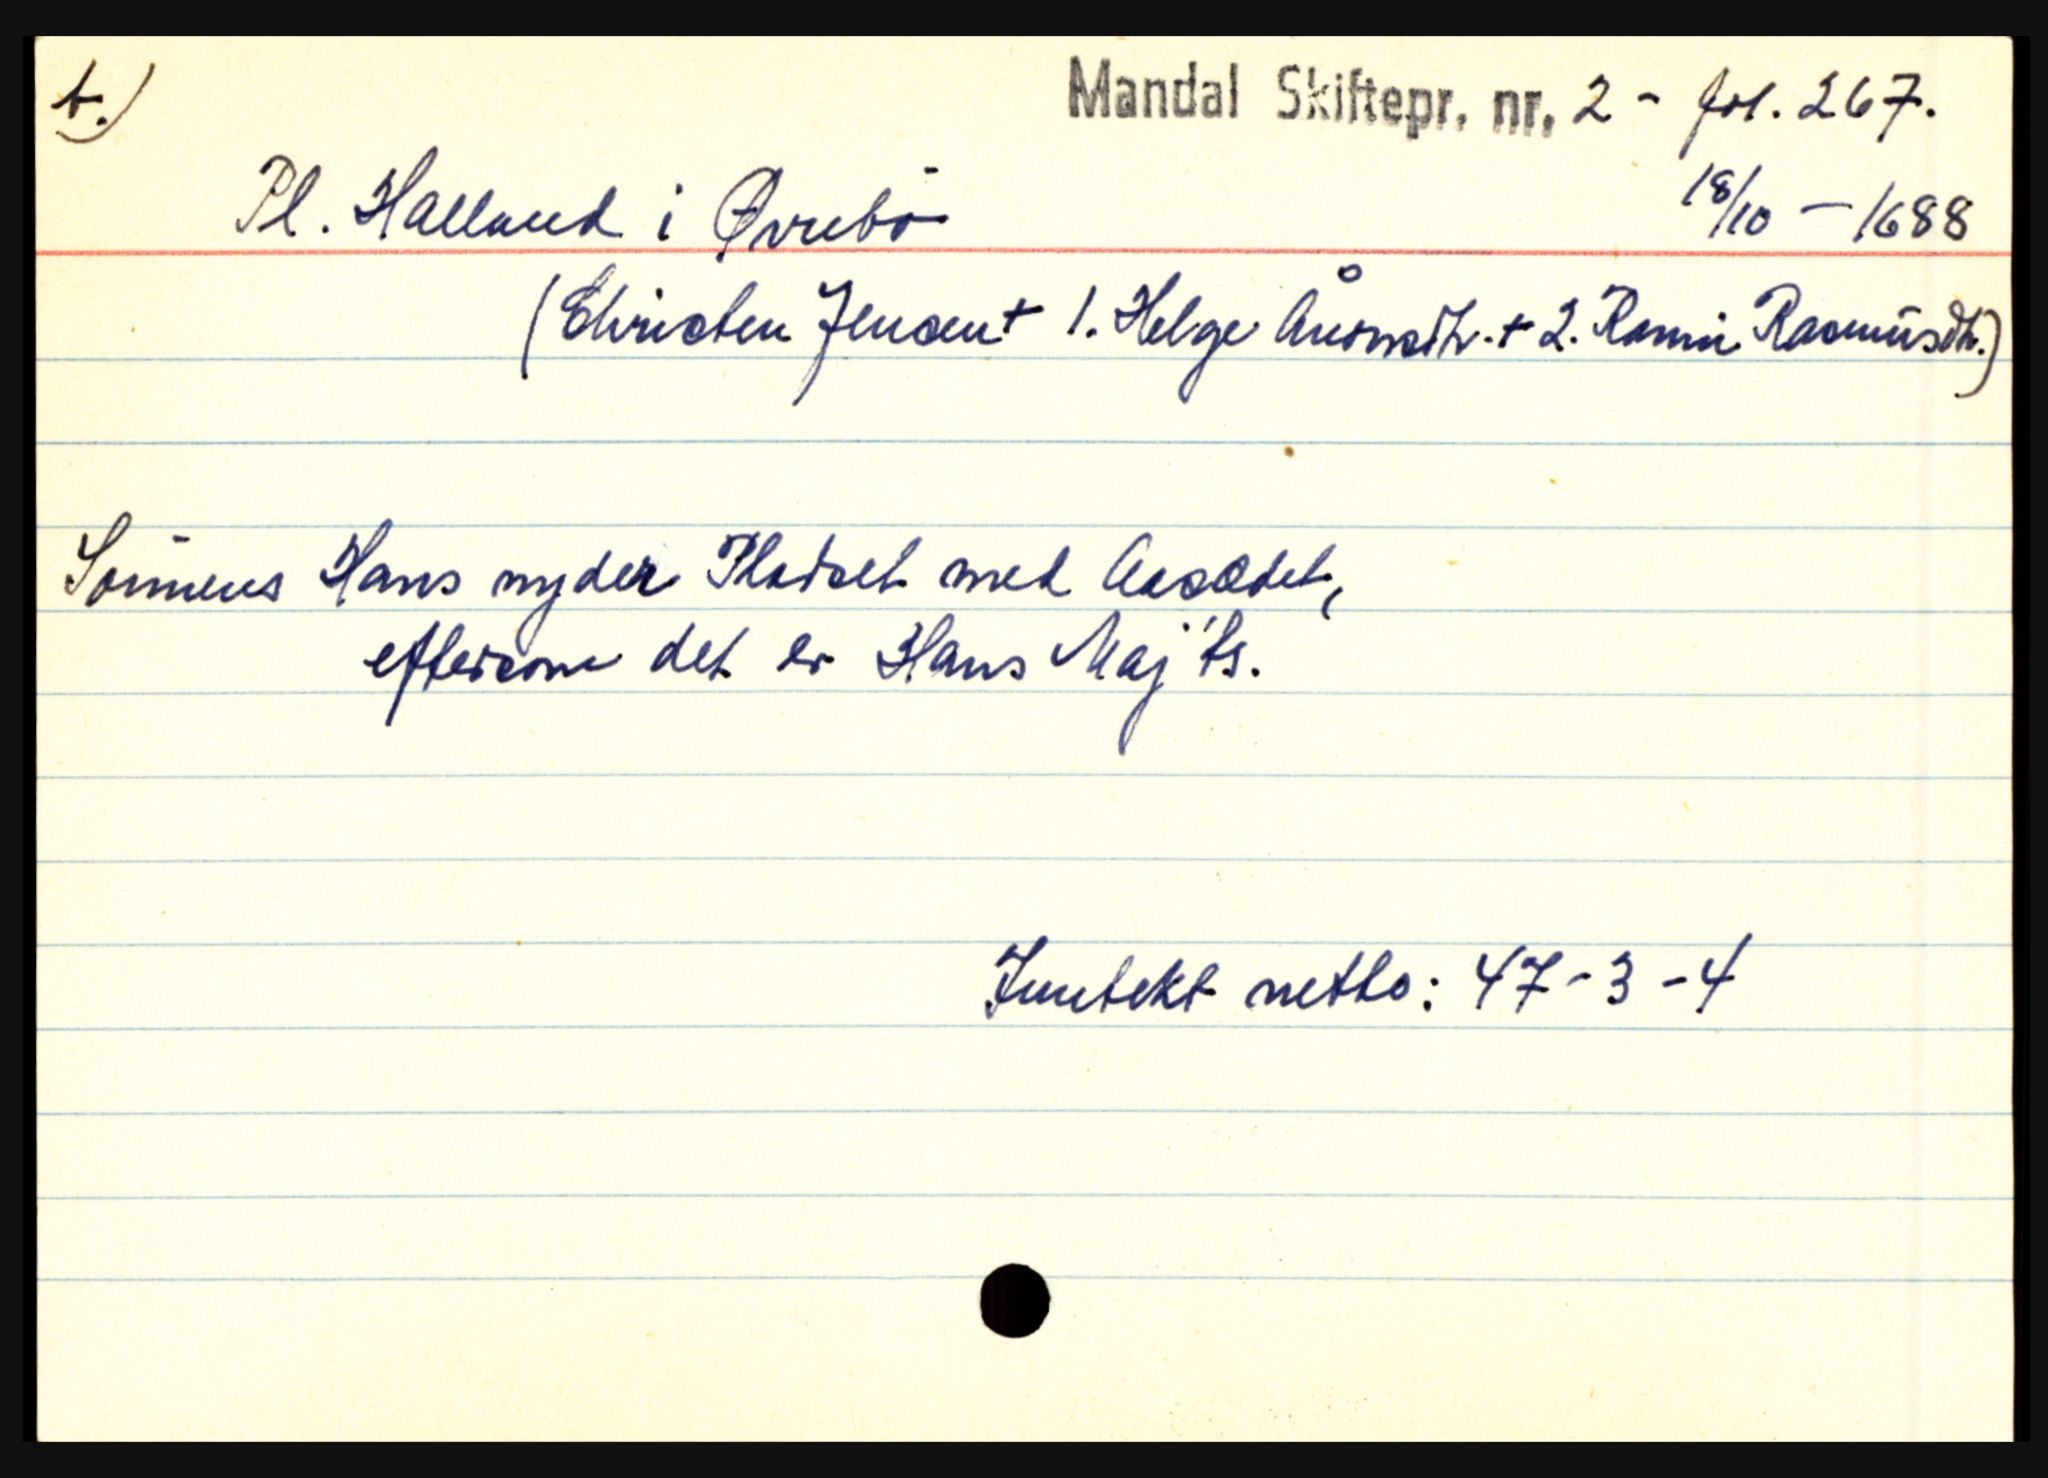 b.)
Mandal Skiftepr. nr. 2 - fol. 267.
Pl. Halland i Øvrebö
18/10 - 1688
(Christen Jensen + 1. Helge Ånonsdtr. + 2. Rasmusdtr.)
Sönnens Hans nyder Pladset med Aasædet,
eftersom det er Hans Maj'ts.
Inntekt netto: 47-3-4